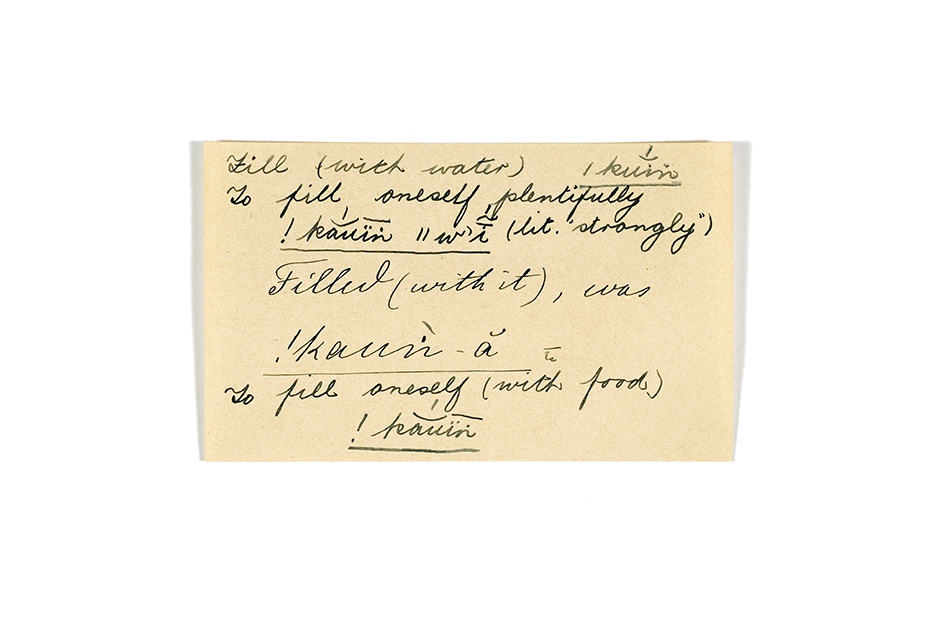 Fill (with water) ! kŭïn
To fill oneself plentifully
! kăuïn ǁ w'ĭ (lit. "strongly")
Filled (with it), was
!kauṅ - ă
To fill oneself (with food)
! kăuïn